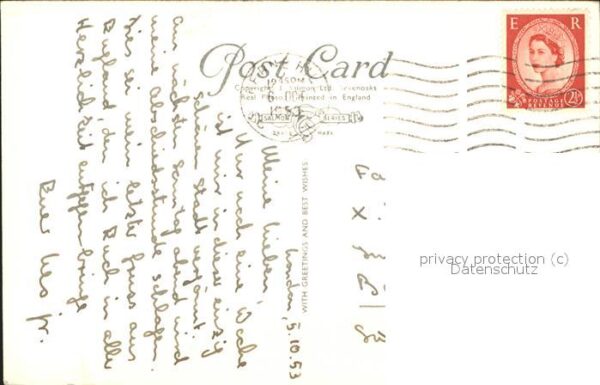 Post Card
Copyright J. Salmon Ltd., Sevenoaks
Real Photo Printed in England
SALMON SERIES
E R
POSTAGE
REVENUE
2½
WITH GREETINGS AND BEST WISHES
London, 5.10.53
Meine Lieben,
Nur noch eine Woche
ist mir in dieser einzig
schönen Stadt vergönnt.
Am nächsten Sonntag abend wird
meine Abschiedsstunde schlagen.
Hier sei mein letzter Gruss aus
England den ich Euch in aller
Herzlichkeit entgegenbringe
Euer Leo jr.
privacy protection (c)
Datenschutz